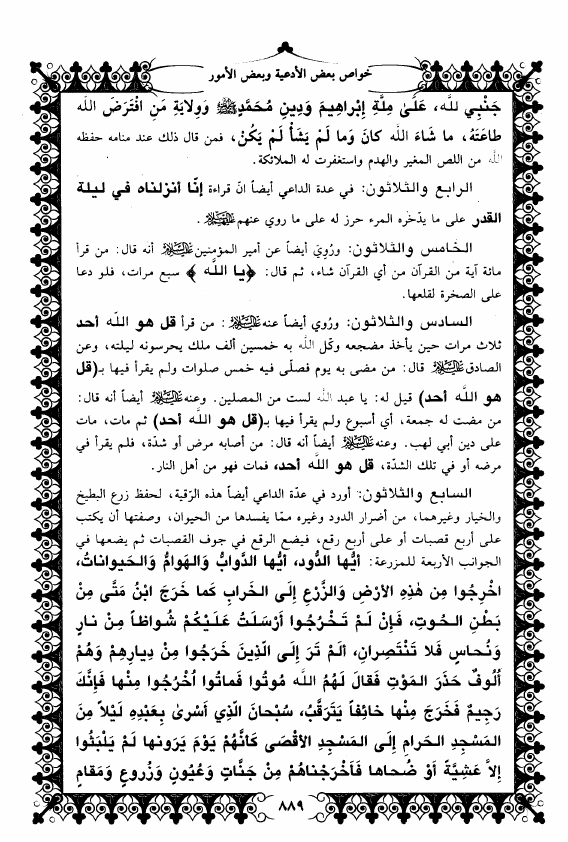 خواص بعض الأدعية وبعض الأمور
جَنْبِي لله، عَلَىٰ مِلَّةِ إبْرَاهِيمَ وَدِينِ مُحَمَّدٍ ﷺ وَوِلايَةِ مَنِ افْتَرَضَ الله
طاعَتَهُ، ما شَاءَ الله كانَ وَما لَمْ يَشَأْ لَمْ يَكُنْ، فمن قال ذلك عند منامه حفظه
الله من اللص المغير والهدم واستغفرت له الملائكة.
الرابع والثلاثون: في عدة الداعي أيضاً انّ قراءة إنّا أنزلناه في ليلة
القدر على ما يدّخره المرء حرز له على ما روي عنهم عليه السلام.
الخامس والثلاثون: ورُويَ أيضاً عن أمير المؤمنين عليه السلام أنه قال: من قرأ
مائة آية من القرآن من أي القرآن شاء، ثم قال: ﴿يا الله﴾ سبع مرات، فلو دعا
على الصخرة لقلعها.
السادس والثلاثون: ورُوي أيضاً عنه عليه السلام: من قرأ قل هو الله أحد
ثلاث مرات حين يأخذ مضجعه وكّل الله به خمسين ألف ملك يحرسونه ليلته، وعن
الصادق عليه السلام قال: من مضى به يوم فصلّى فيه خمس صلوات ولم يقرأ فيها بـ(قل
هو الله أحد) قيل له: يا عبد الله لست من المصلين. وعنه عليه السلام أيضاً أنه قال:
من مضت له جمعة، أي أسبوع ولم يقرأ فيها بـ(قل هو الله أحد) ثم مات، مات
على دين أبي لهب. وعنه عليه السلام أيضاً أنه قال: من أصابه مرض أو شدّة، فلم يقرأ في
مرضه أو في تلك الشدّة، قل هو الله أحد، فمات فهو من أهل النار.
السابع والثلاثون: أورد في عدّة الداعي أيضاً هذه الرّقية، لحفظ زرع البطيخ
والخيار وغيرهما، من أضرار الدود وغيره ممّا يفسدها من الحيوان، وصفتها أن يكتب
على أربع قصبات أو على أربع رقع، فيضع الرقع في جوف القصبات ثم يضعها في
الجوانب الأربعة للمزرعة: أيُّها الدُّود، أيُّها الدَّوابُّ وَالهَوامُّ وَالحَيوانات،
اخْرِجُوا مِن هٰذِهِ الأرْضِ وَالزَّرْعِ إلَى الخَرابِ كَما خَرَجَ ابْنُ مَتَّى مِنْ
بَطْنِ الحُوتِ، فَإنْ لَمْ تَخْرُجُوا أرْسَلْتُ عَلَيْكُمْ شُواظاً مِنْ نارٍ
وَنُحاسٍ فَلا تَنْتَصِرانِ، ألَمْ تَرَ إلَى الَّذِينَ خَرَجُوا مِنْ دِيارِهِمْ وَهُمْ
أُلُوفٌ حَذَرَ المَوْتِ فَقالَ لَهُمُ الله مُوتُوا فَماتُوا اُخْرُجُوا مِنْها فَإنَّكَ
رَجِيمٌ فَخَرَجَ مِنْها خائِفاً يَتَرَقَّبُ، سُبْحانَ الَّذِي أسْرىٰ بِعَبْدِهِ لَيْلاً مِنَ
المَسْجِدِ الحَرامِ إلَى المَسْجِدِ الأقْصَى كَأنَّهُمْ يَوْمَ يَرَونها لَمْ يَلْبَثُوا
إلاَّ عَشِيَّةً أوْ ضُحاها فَأخْرَجْناهُمْ مِنْ جَنَّاتٍ وَعُيُونٍ وَزُروعٍ وَمَقامٍ
٨٨٩